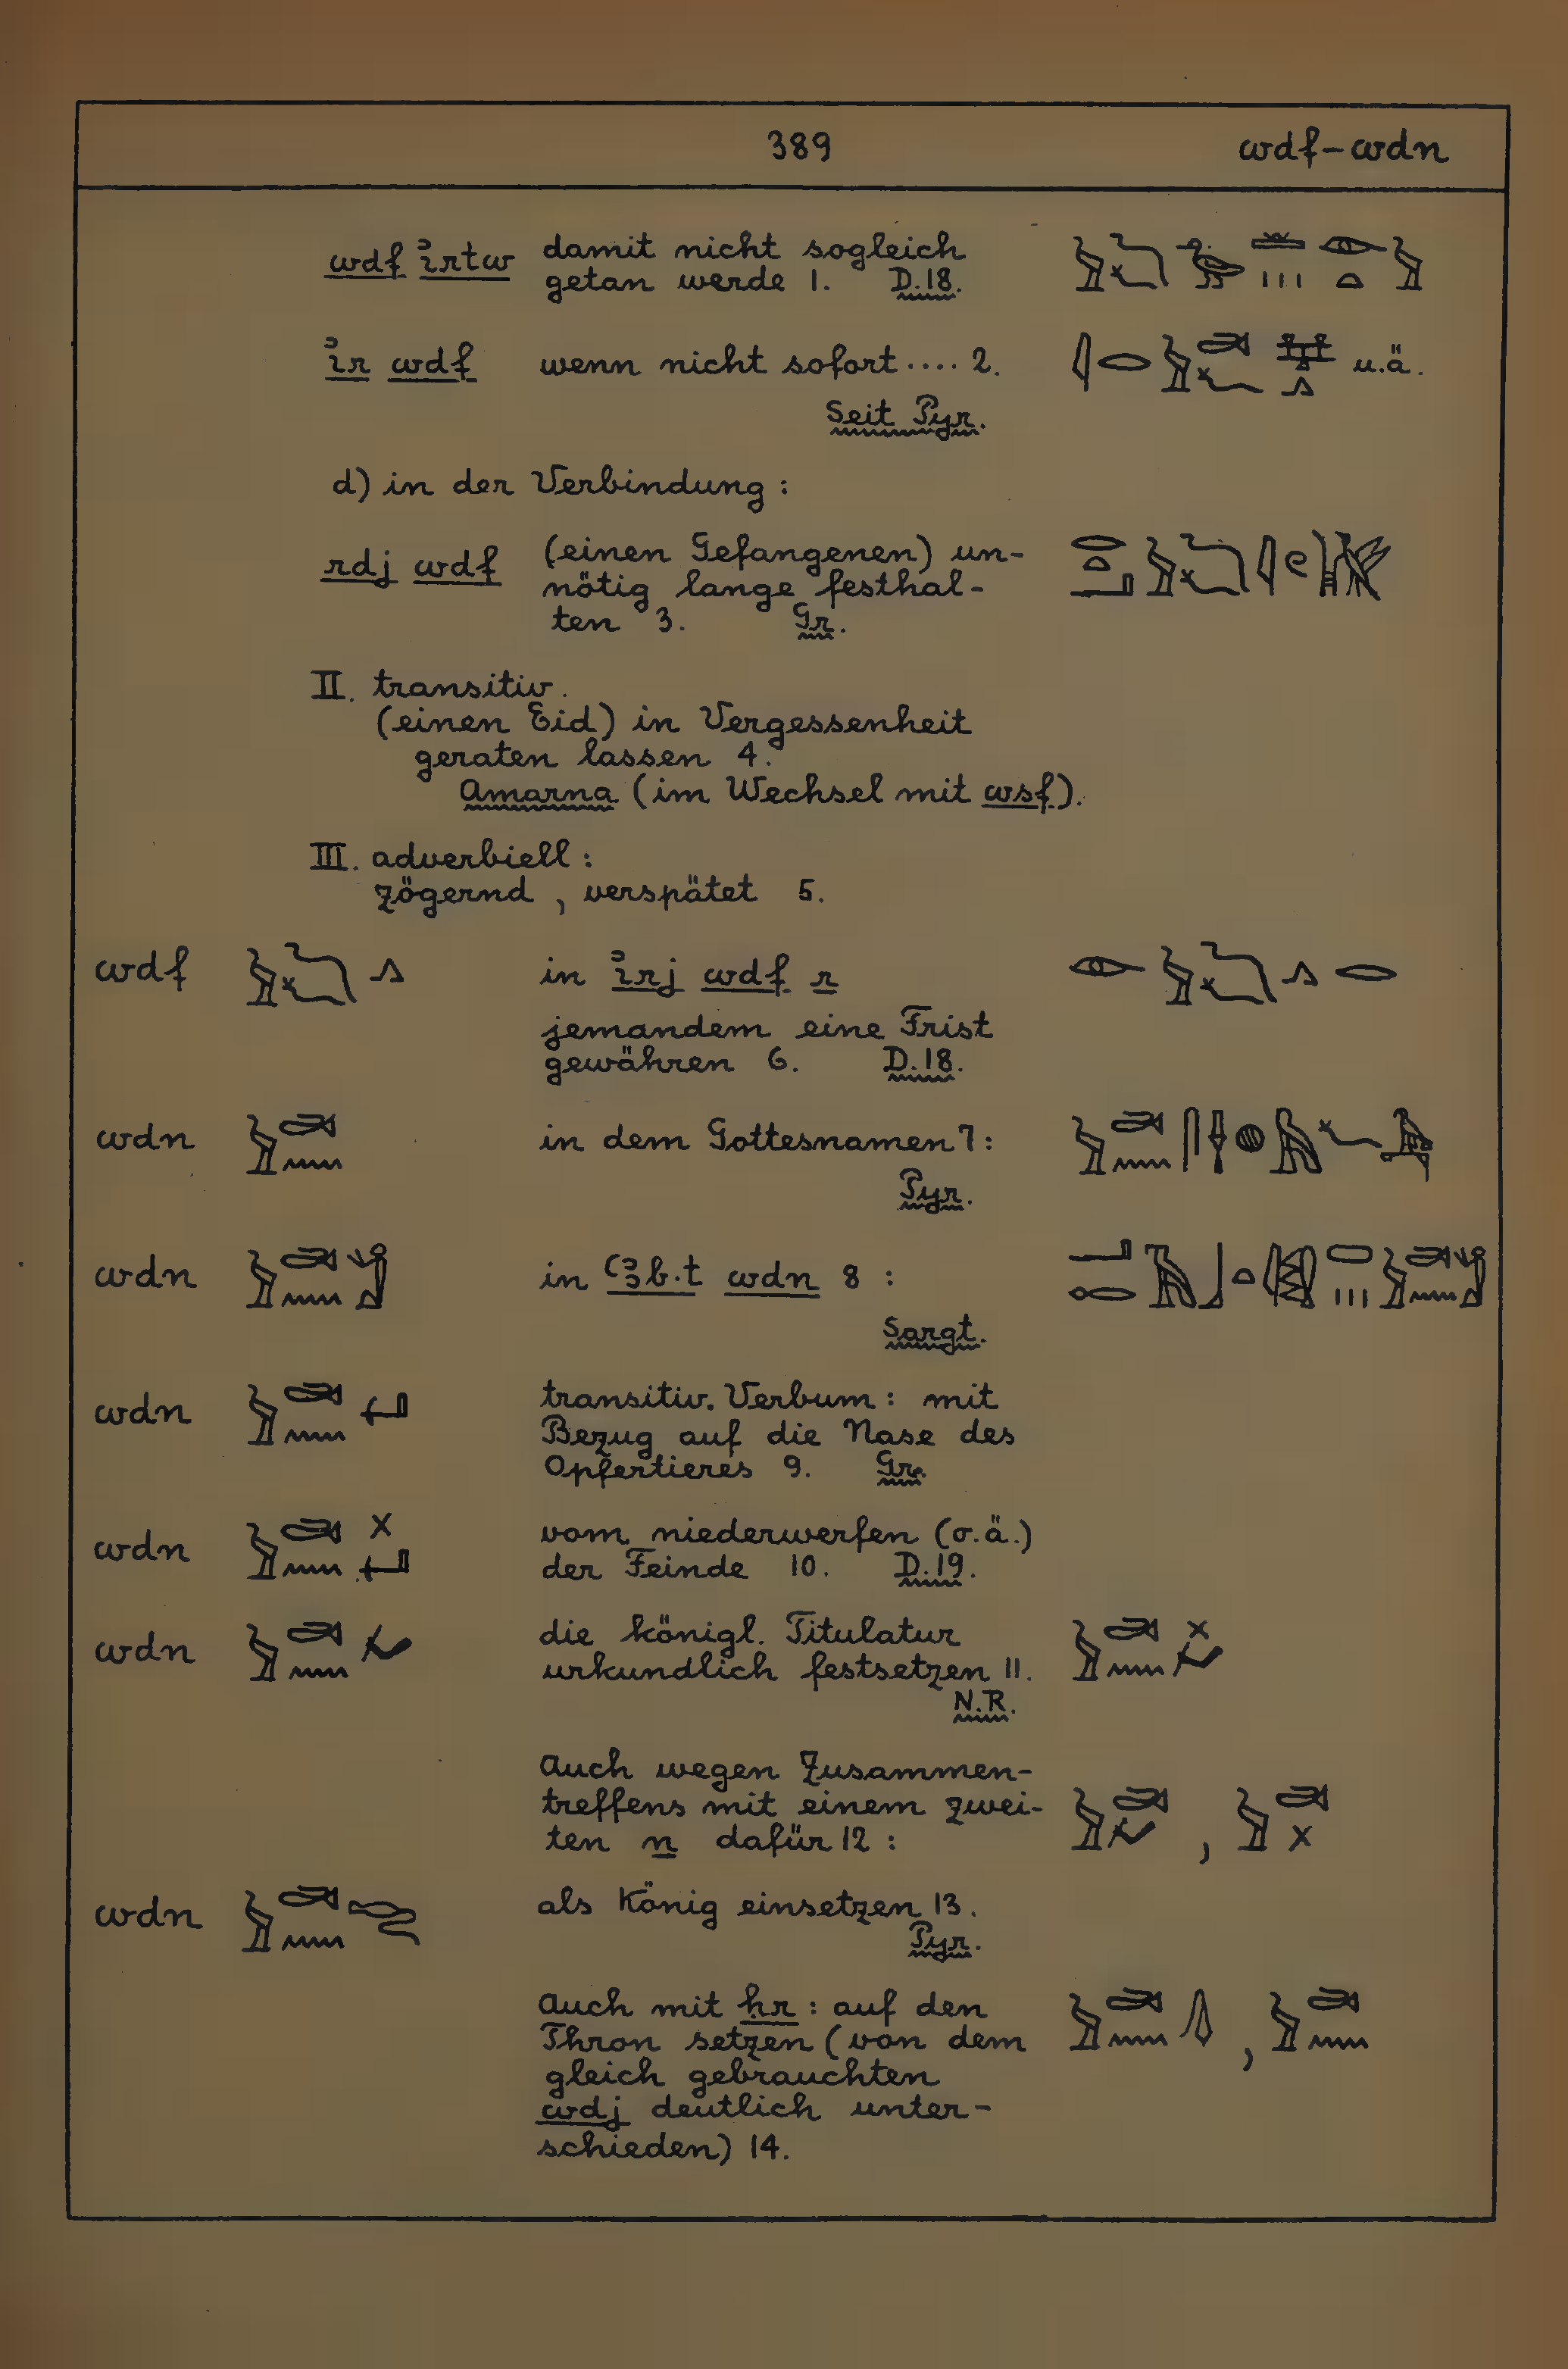 389 wdf-wdn
wdf ỉrtw damit nicht sogleich
getan werde 1. D.18.
ỉr wdf wenn nicht sofort .... 2. u.ä.
Seit Pyr.
d) in der Verbindung:
rdj wdf (einen Gefangenen) un-
nötig lange festhal-
ten 3. Gr.
II. transitiv.
(einen Eid) in Vergessenheit
geraten lassen 4.
Amarna (im Wechsel mit wsf).
III. adverbiell:
zögernd, verspätet 5.
wdf in ỉrj wdf r
jemandem eine Frist
gewähren 6. D.18.
wdn in dem Gottesnamen 7:
Pyr.
wdn in ꜥꜣb.t wdn 8 :
Sargt.
wdn transitiv. Verbum: mit
Bezug auf die Nase des
Opfertieres 9. Gr.
wdn vom niederwerfen (o.ä.)
der Feinde 10. D.19.
wdn die königl. Titulatur
urkundlich festsetzen 11.
N.R.
Auch wegen Zusammen-
treffens mit einem zwei-
ten n dafür 12 : ,
wdn als König einsetzen 13.
Pyr.
Auch mit ḥr : auf den
Thron setzen (von dem ,
gleich gebrauchten
wdj deutlich unter-
schieden) 14.